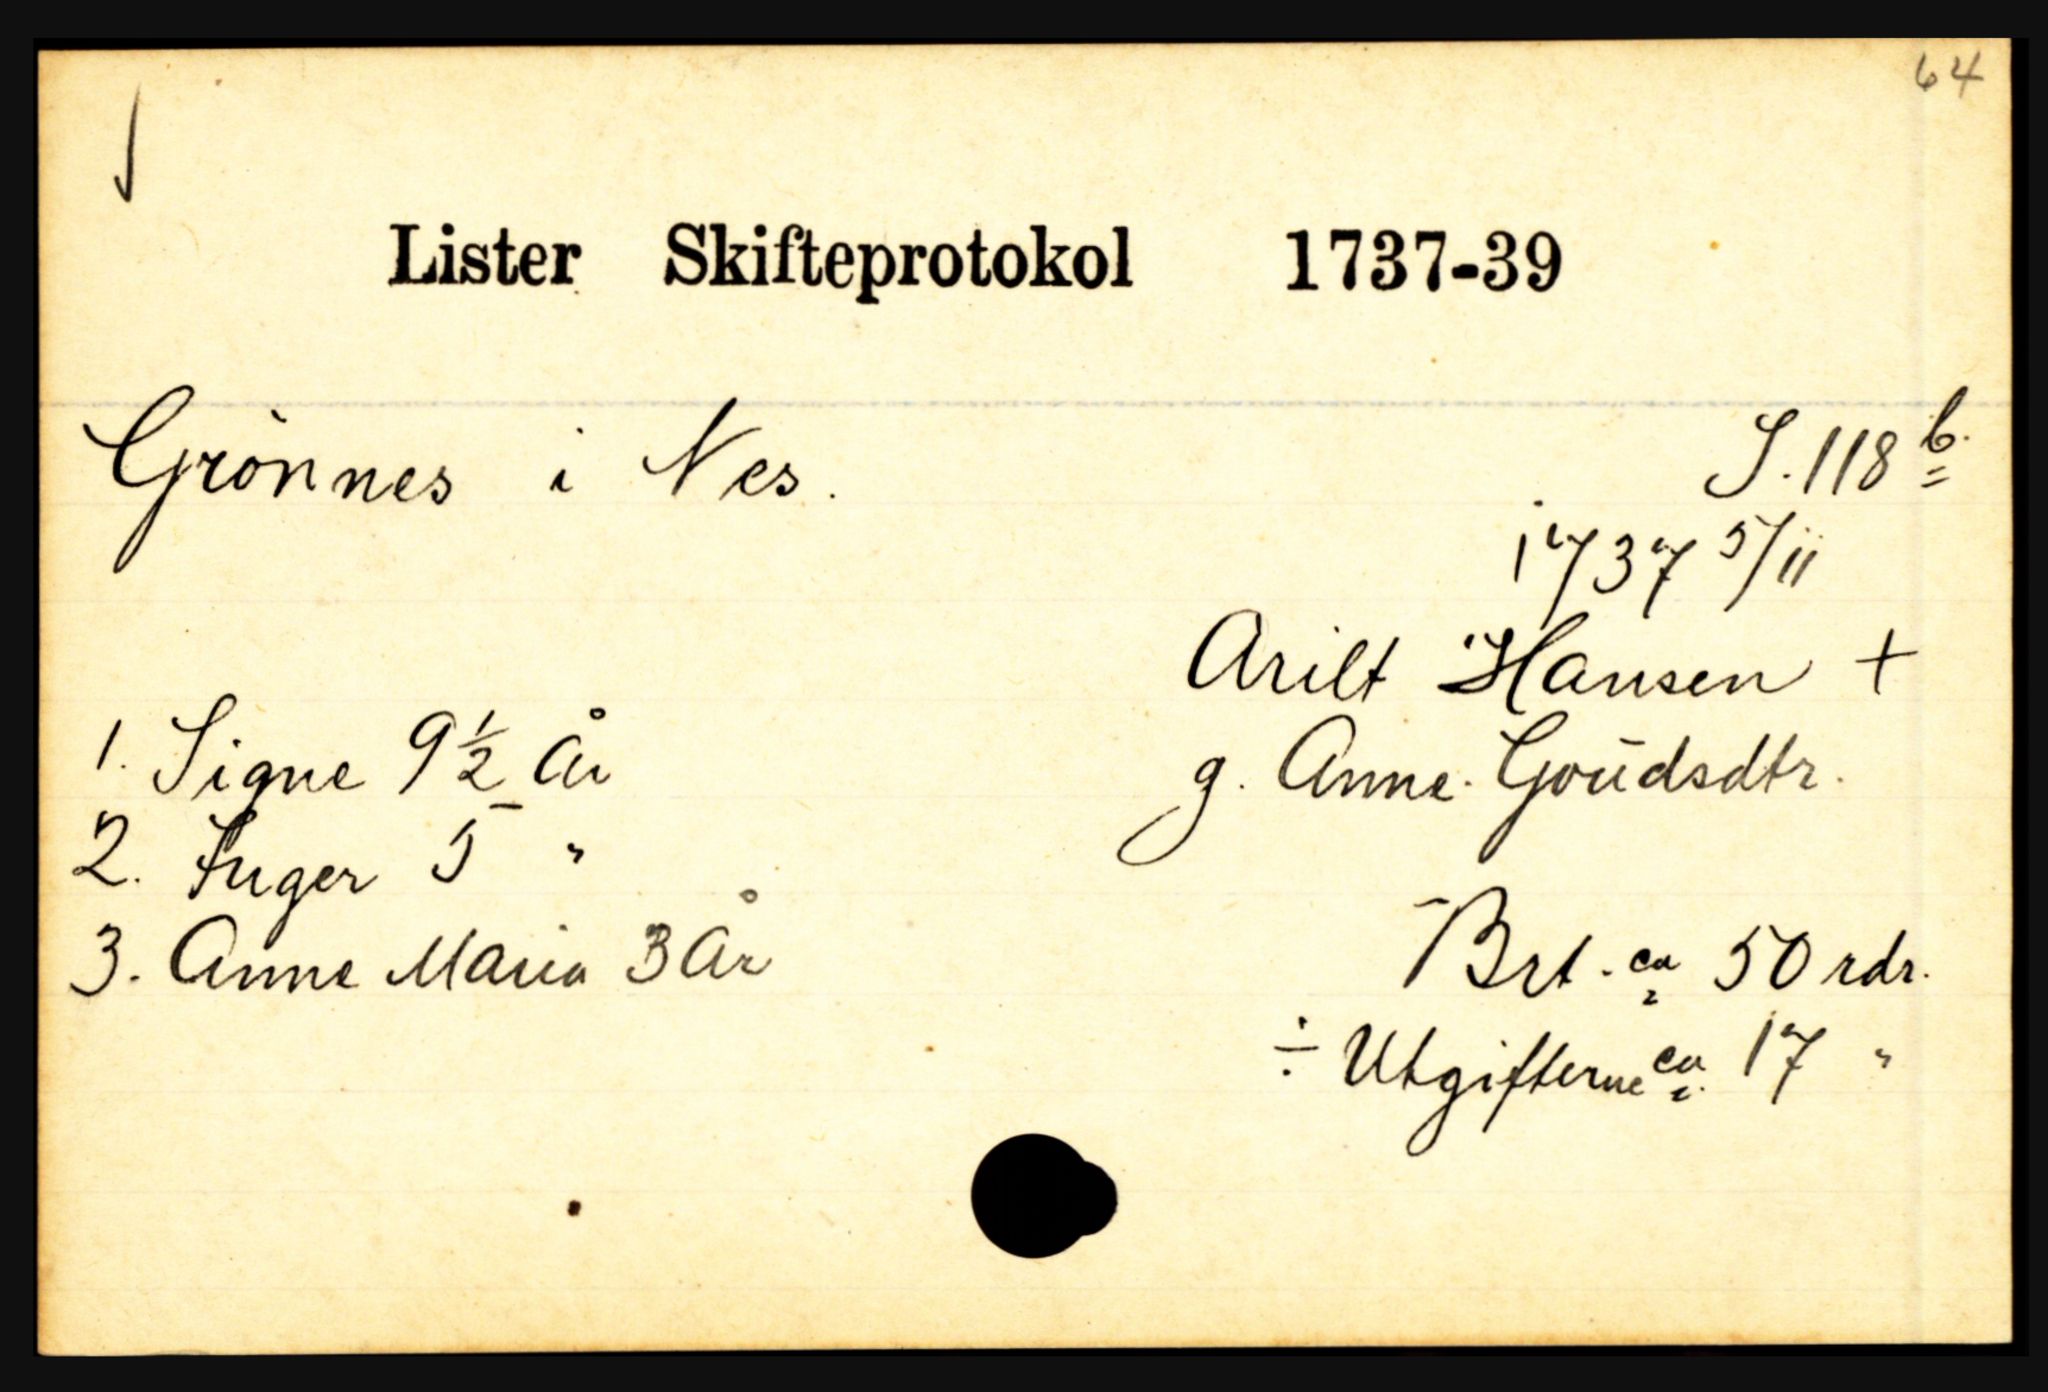 64
Lister Skifteprotokol 1737-39
Grönnes i Nes.
S. 118 b.
1737 5/11
Arilt Hansen +
g. Anne Goudsdtr.
1. Signe 9 1/2 År
2. Inger 5 "
3. Anne Maria 3 År
Brt. ca 50 rdr.
÷ Utgifterne ca. 17 "